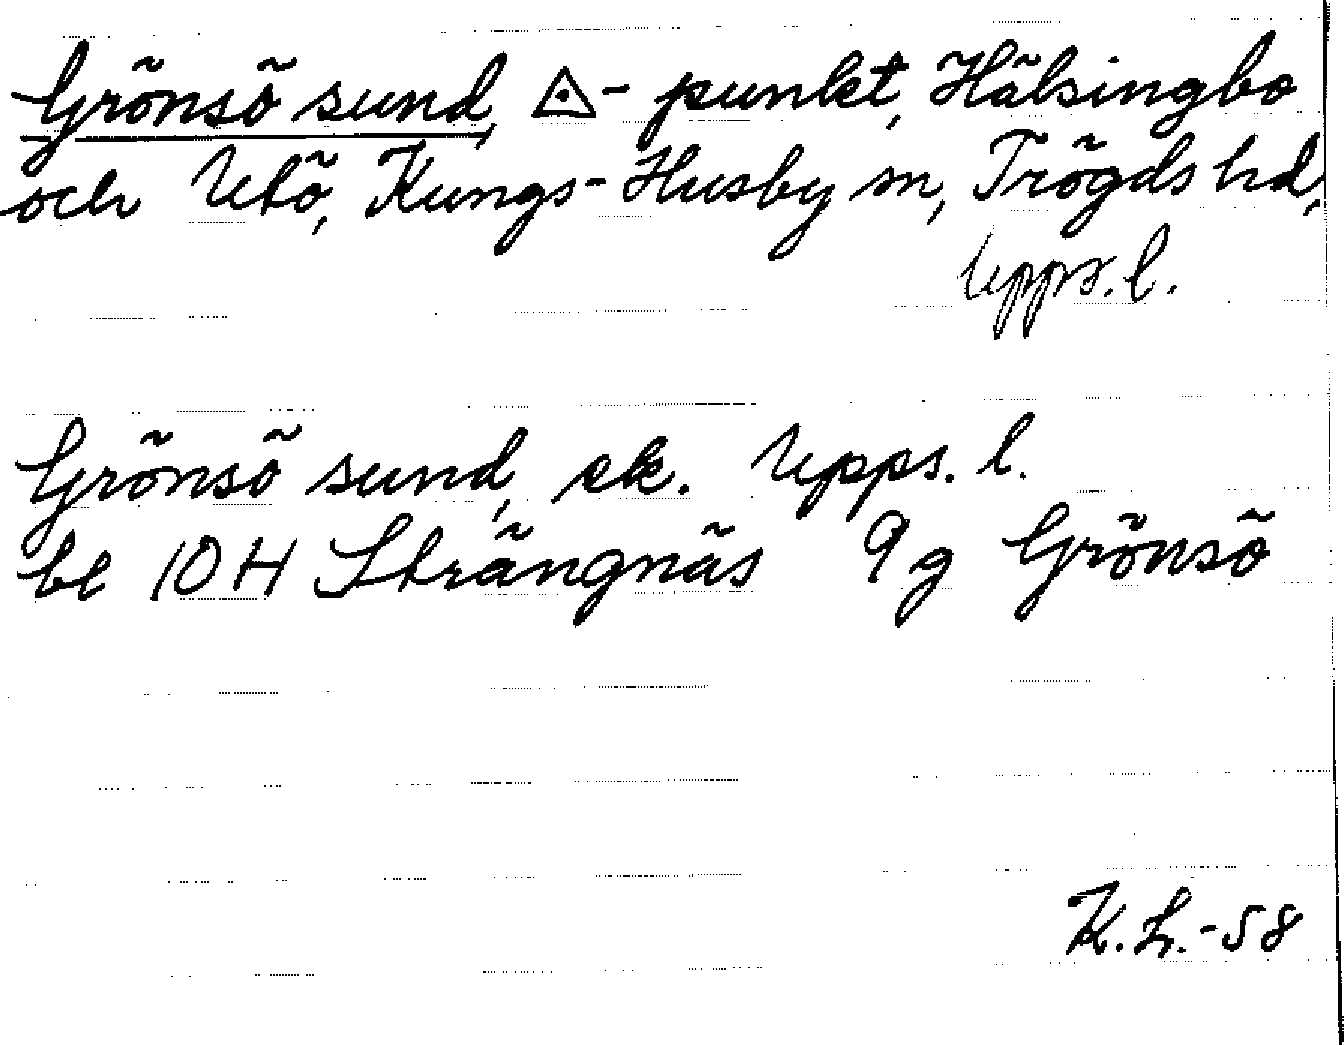 Grönsö sund, △-punkt, Hälsingbo
och Utö, Kungs-Husby sn, Trögds hd,
Upps. l.
Grönsö sund, ek. Upps. l.
bl 10H Strängnäs 9g Grönsö
K. L. -58